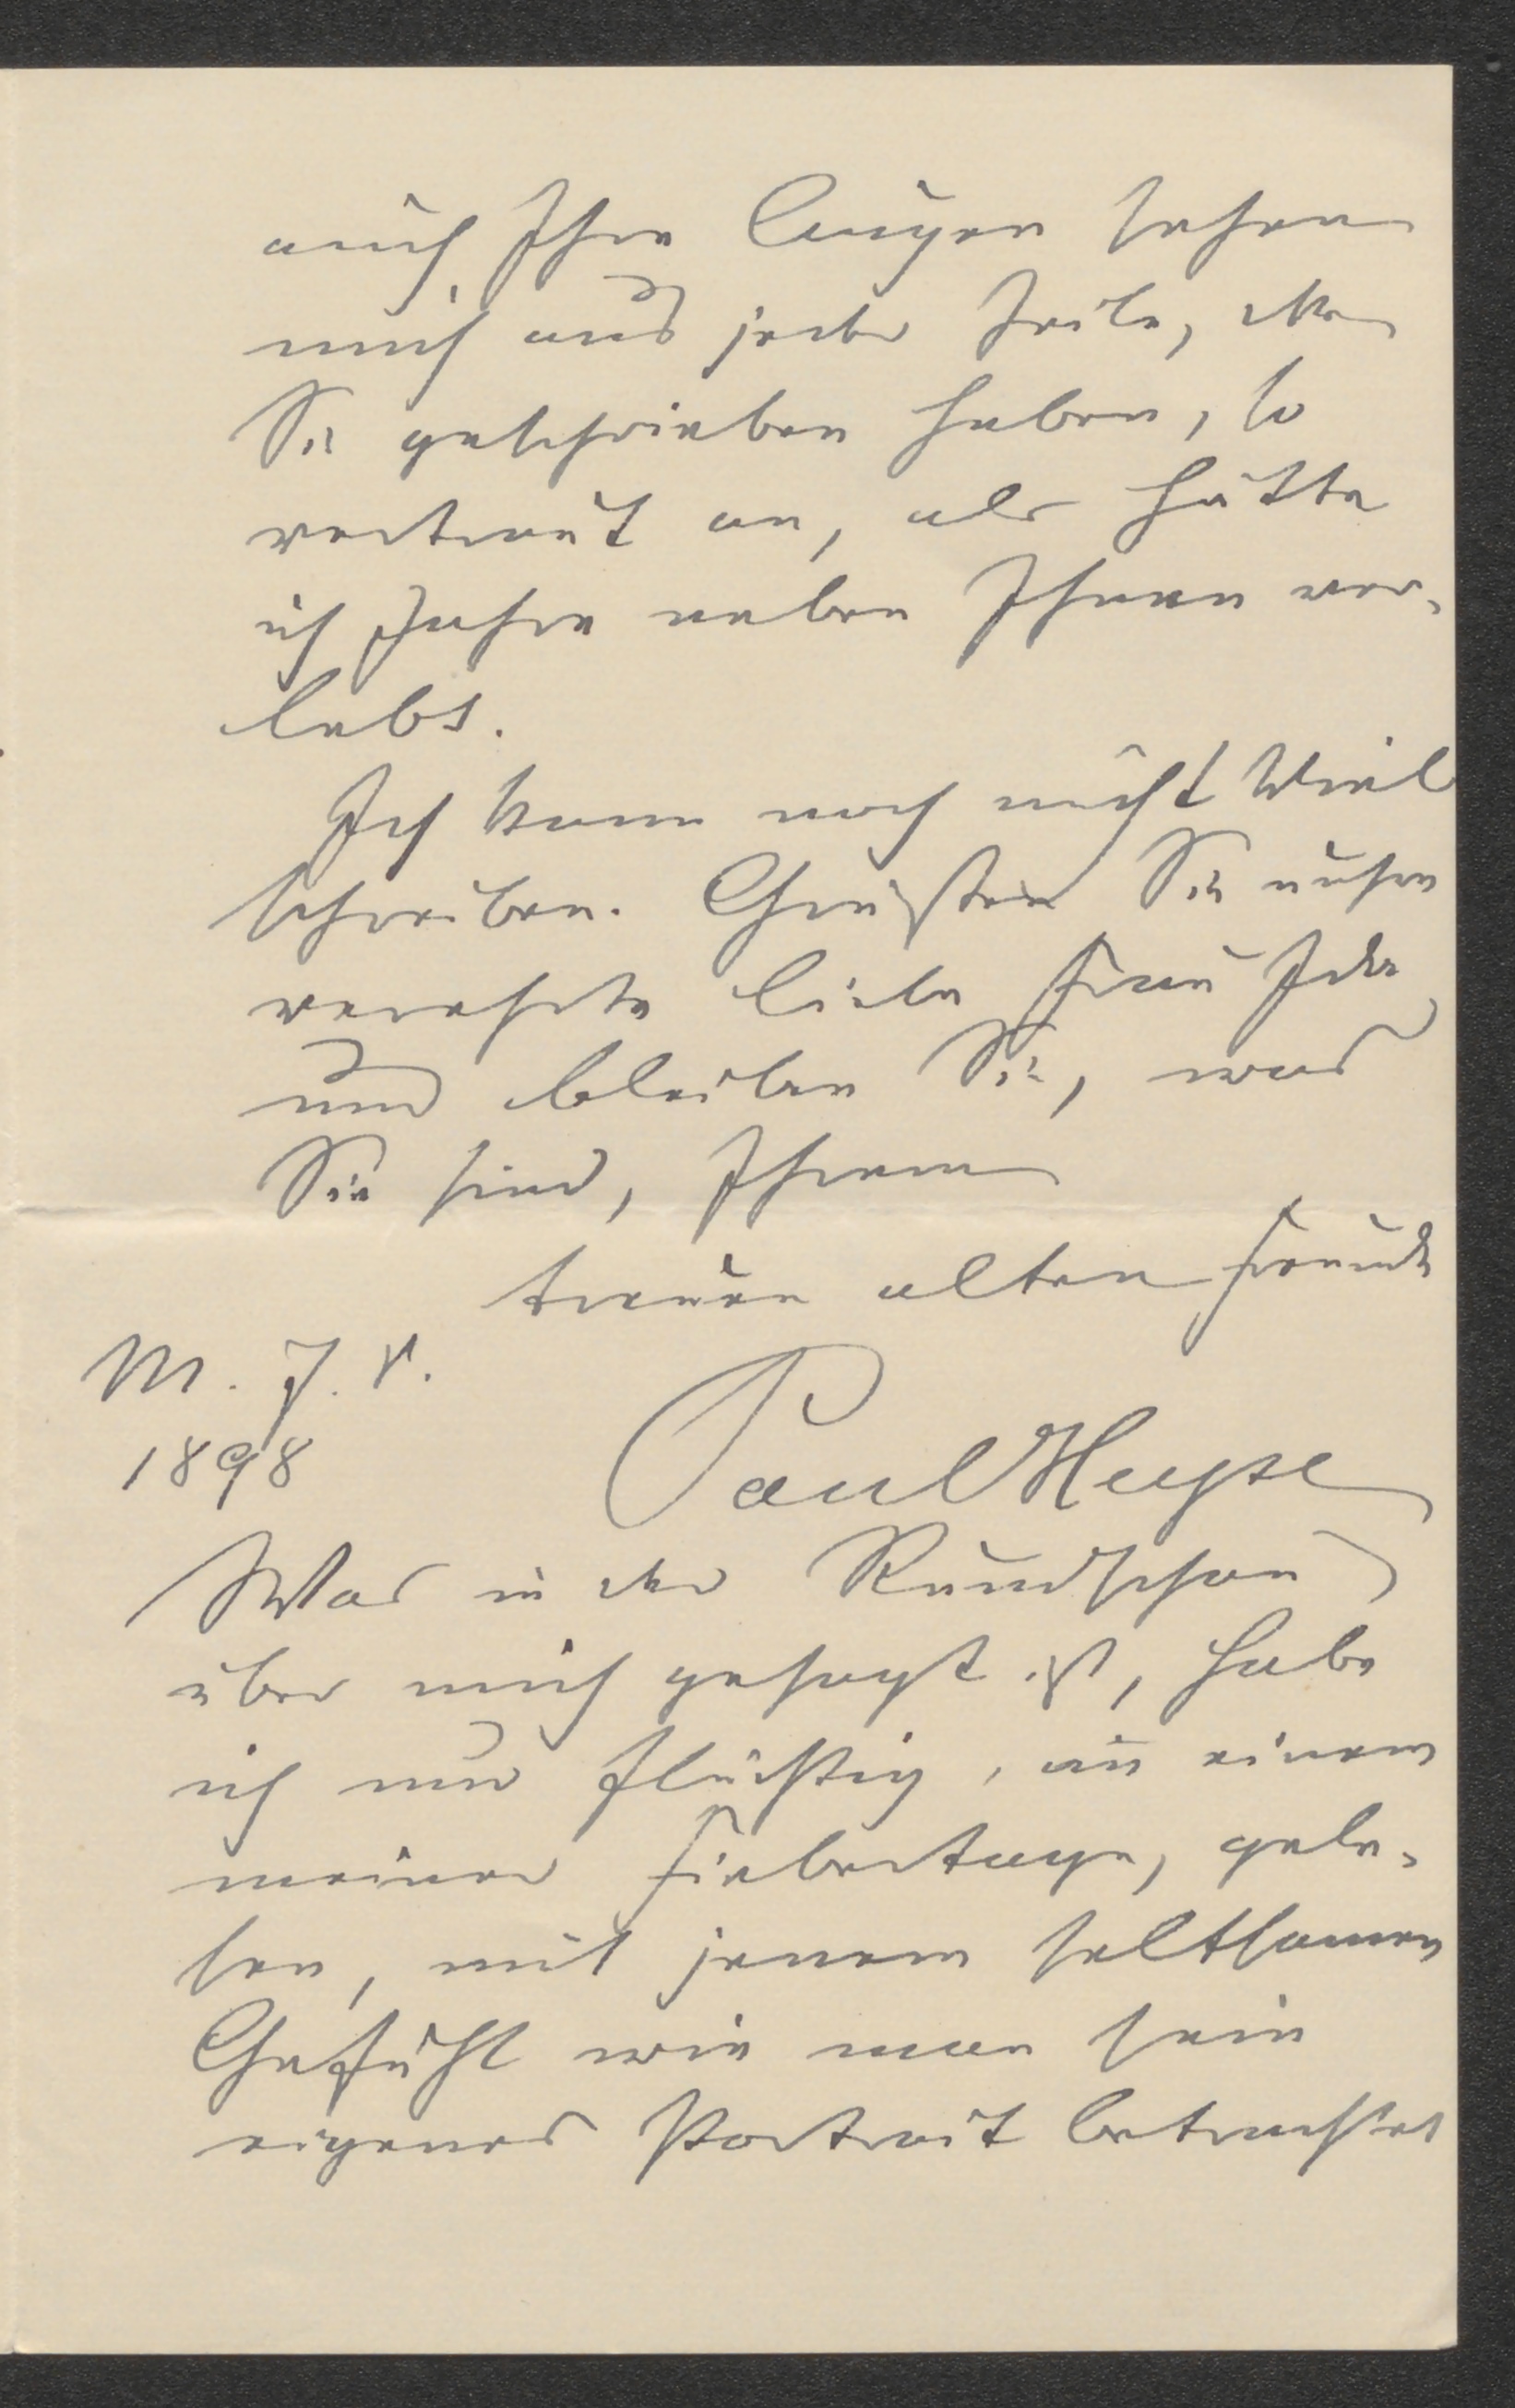 auch Ihre Augen sehen
mich aus jeder Zeile, die
Sie geschrieben haben, so
vertraut an, als hätte
ich Jahre neben Ihnen ver-
lebt.
Ich kann noch nicht Viel
schreiben. Grüßen Sie unsre
verehrte liebe Frau Ida
und bleiben Sie, was
Sie sind, Ihrem
treuen alten Freunde
M. 7. V.
1898
Paul Heyse
Was in der Rundschau
über mich gesagt ist, habe
ich nur flüchtig, an einem
meiner Fiebertage, gele-
sen, mit jenem seltsamen
Gefühl wie man sein
eigenes Portrait betrachtet